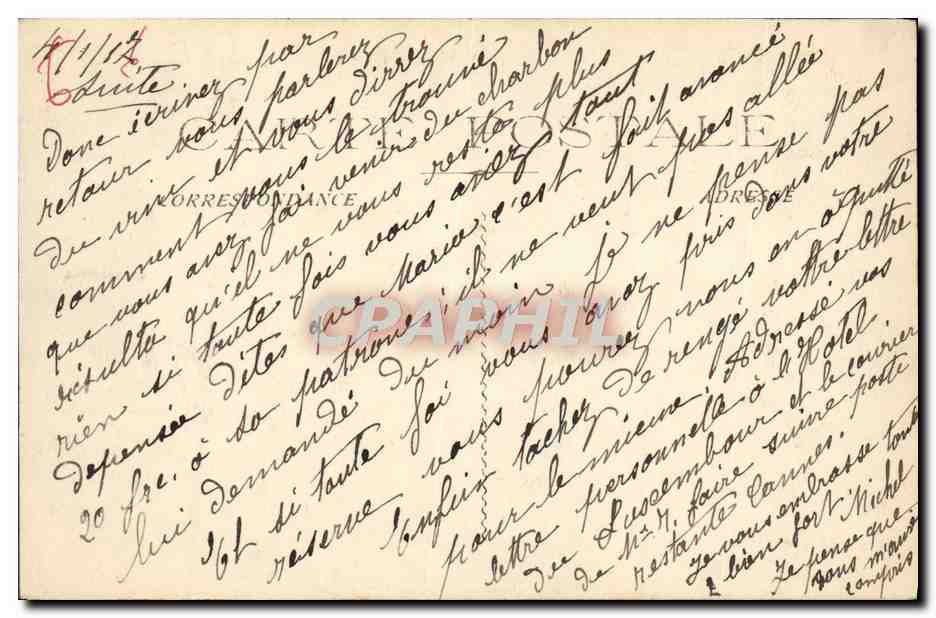 4/1/17
Suite
CARTE POSTALE
CORRESPONDANCE
ADRESSE
Donc écrivez par
retour vous parlerez
du vin et vous dirrez
comment vous le trouvé
que vous avez fai venir du charbon
résulta qu'il ne vous reste plus
rien si toute fois vous aviez tant
depensée dites que Maria s'est fait avancé
20 frc. à sa patrone s'il ne veut pas allée
lui demandé du moin je ne pense pas
Et si toute foi vous avez pris dans votre
réserve vous pourez nous en acquitté
Enfin tachez de rengé vottre lettre
pour le mieux. Adressé vos
lettre personnelle à l'Hotel
du Luxembour et le courrier
de Mr. M. faire suivre poste
restante Cannes.
Je vous embrasse toute
2 bien fort Michel
Je pense que
vous m'avez
compris
CPAPHIL